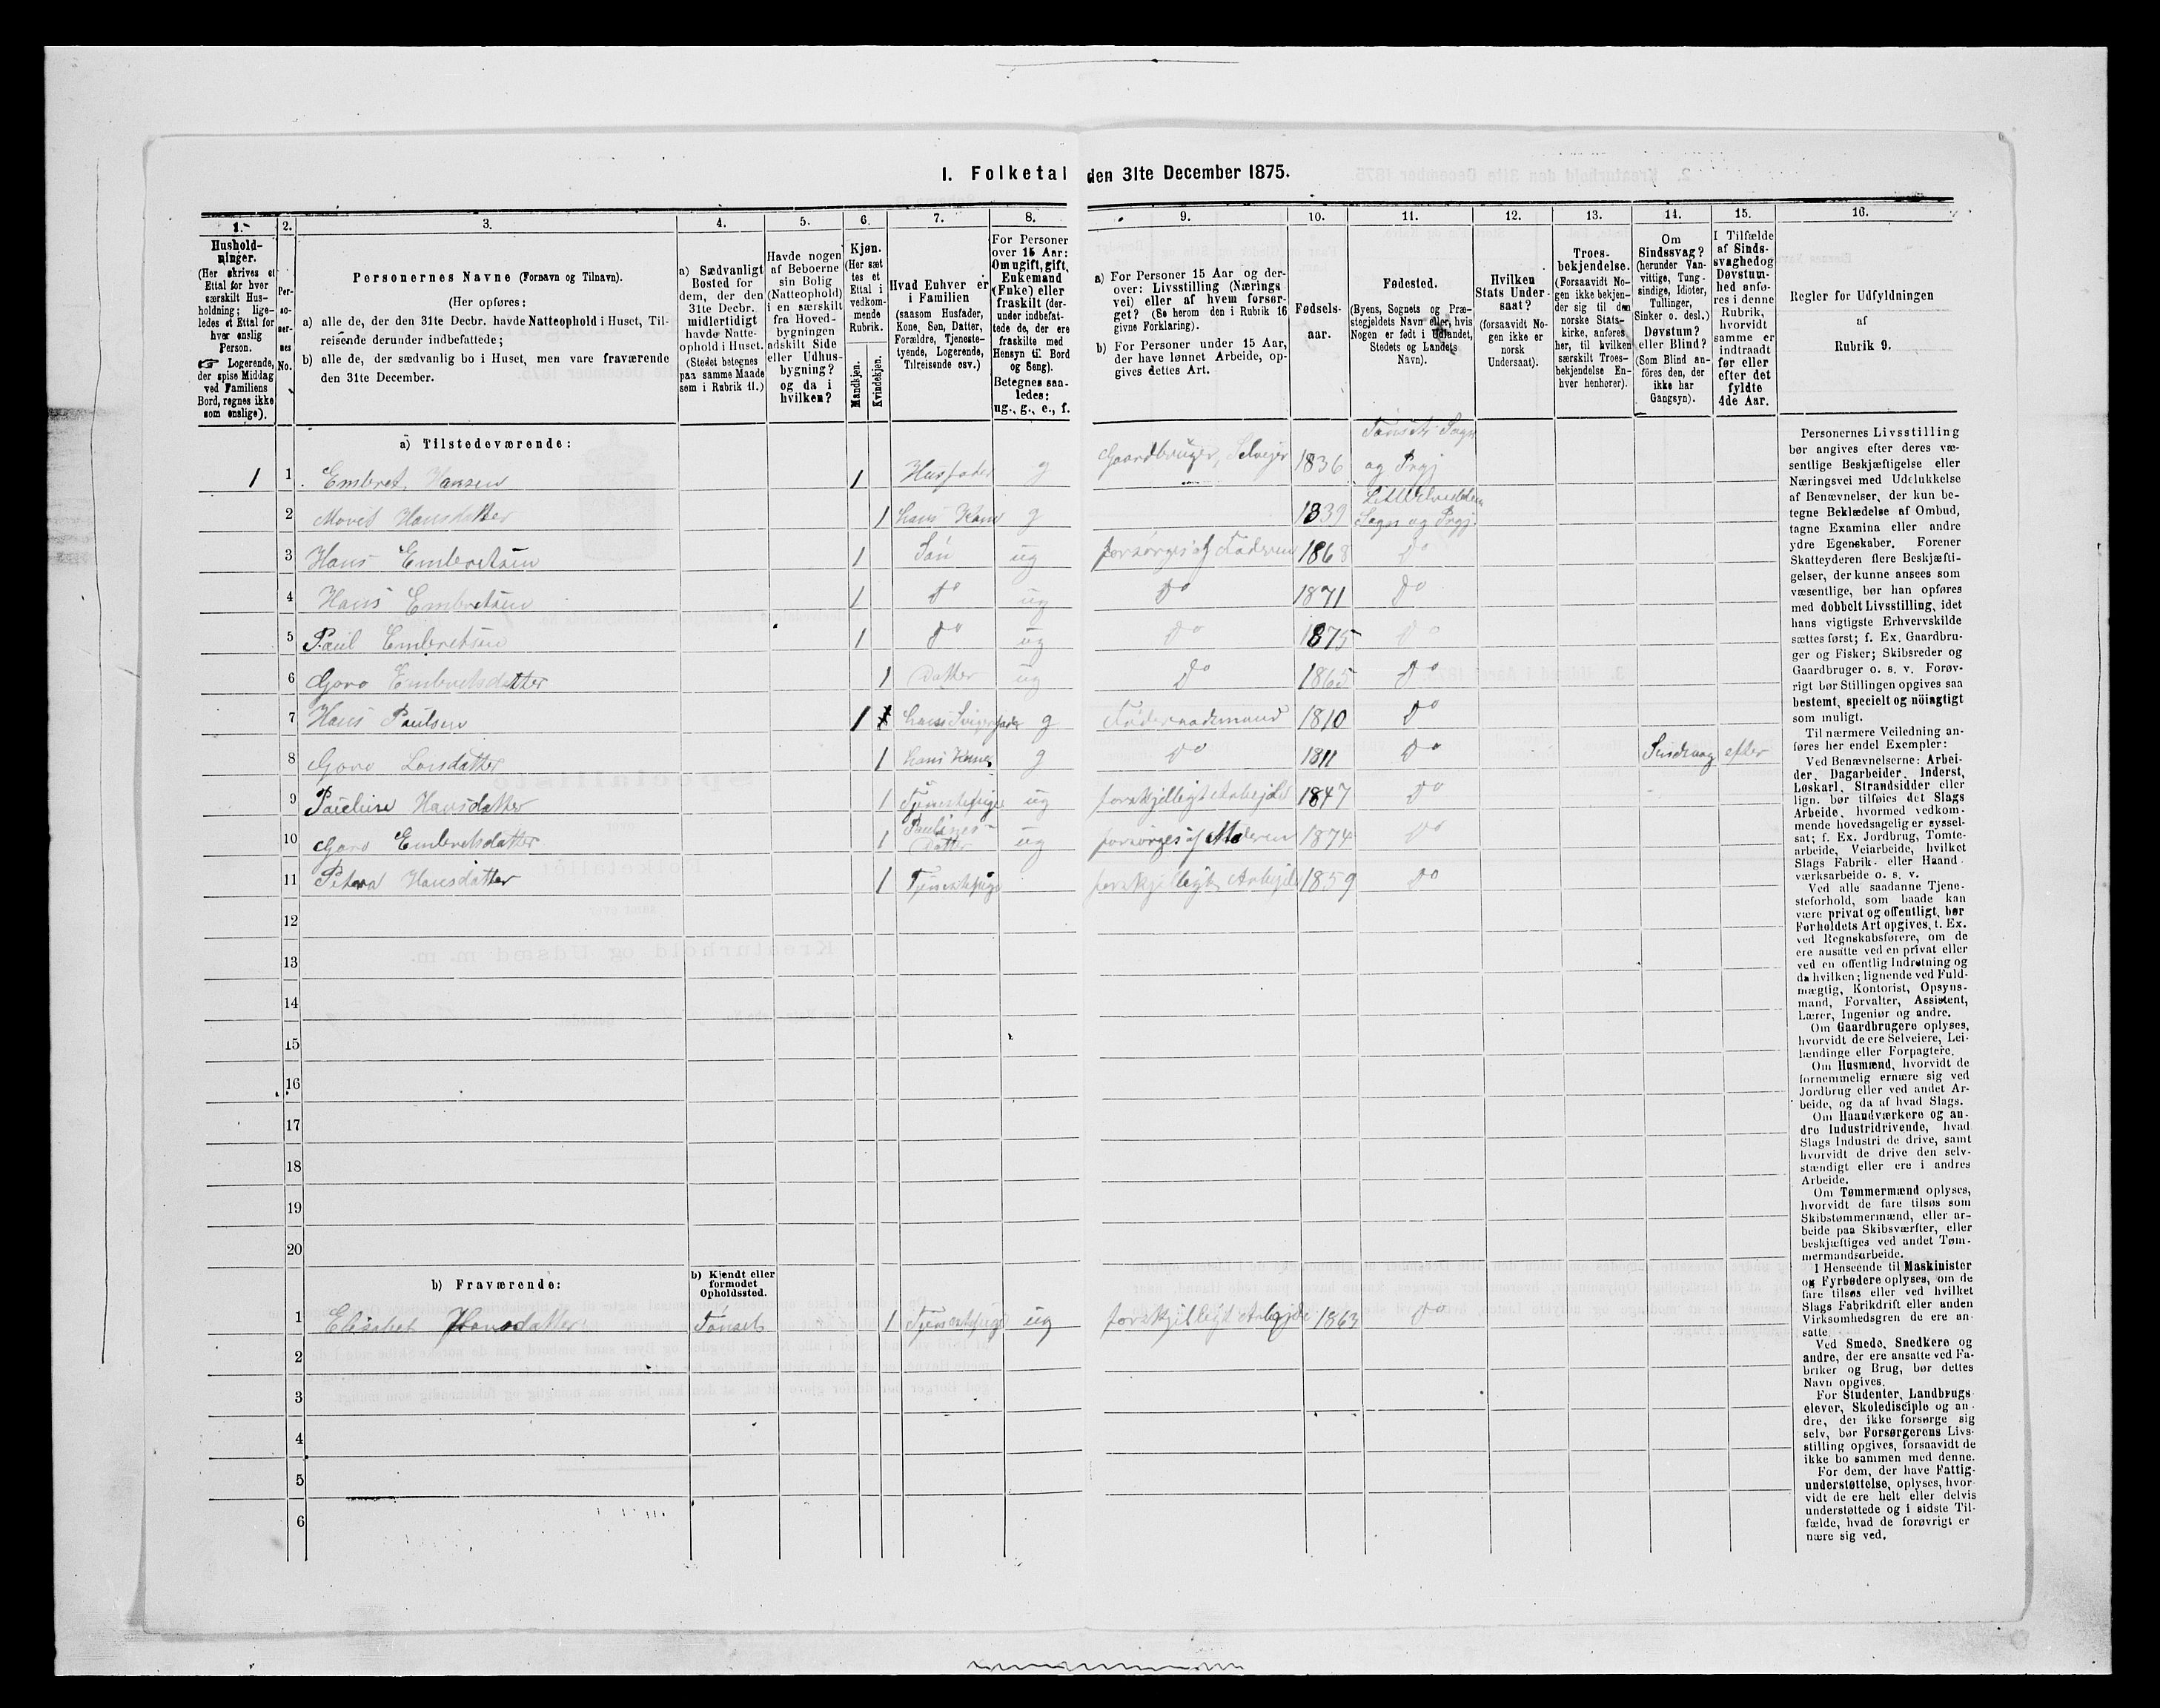 I. Folketal den 31te December 1875.
1.
Hushold-
ninger.
(Her skrives et
Ettal for hver
særskilt Hus-
holdning; lige-
ledes et Ettal for
hver enslig
Person.
☞ Logerende,
der spise Middag
ved Familiens
Bord, regnes ikke
som enslige).
2.
Per-
so-
ner-
nes
No.
3.
Personernes Navne (Fornavn og Tilnavn).
(Her opføres:
a) alle de, der den 31te Decbr. havde Natteophold i Huset, Til-
reisende derunder indbefattede;
b) alle de, der sædvanlig bo i Huset, men vare fraværende
den 31te December.
4.
a) Sædvanligt
Bosted for
dem, der den
31te Decbr.
midlertidigt
havde Natte-
ophold i Huset.
(Stedet betegnes
paa samme Maade
som i Rubrik 11.)
5.
Havde nogen
af Beboerne
sin Bolig
(Natteophold)
i en særskilt
fra Hoved-
bygningen
adskilt Side
eller Udhus-
bygning?
og da i
hvilken?
6.
Kjøn.
(Her sæt
tes et
Ettal i
vedkom-
mende
Rubrik.
Mandkjøn.
Kvindekjøn.
7.
Hvad Enhver er
i Familien
(saasom Husfader,
Kone, Søn, Datter,
Forældre, Tjeneste-
tyende, Logerende,
Tilreisende osv.)
8.
For Personer
over 15 Aar:
Om ugift, gift,
Enkemand
(Enke) eller
fraskilt (der-
under indbefat-
tede de, der ere
fraskilte med
Hensyn til Bord
og Seng).
Betegnes saa-
ledes:
ug., g., e., f.
9.
a) For Personer 15 Aar og der-
over: Livsstilling (Nærings
vei) eller af hvem forsør-
get? (Se herom den i Rubrik 16
givne Forklaring).
b) For Personer under 15 Aar,
der have lønnet Arbeide, op-
gives dettes Art.
10.
Fødsels-
aar.
11.
Fødested.
(Byens, Sognets og Præ-
stegjeldets Navn eller, hvis
Nogen er født i Udlandet,
Stedets og Landets
Navn).
12.
Hvilken
Stats Under-
saat?
(forsaavidt No-
gen ikke er
norsk
Undersaat).
13.
Troes-
bekjendelse.
(Forsaavidt No-
gen ikke bekjen-
der sig til den
norske Stats-
kirke, anføres
her, til hvilken
særskilt Troes-
bekjendelse En-
hver henhører).
14.
Om
Sindssvag?
(herunder Van-
vittige, Tung-
sindige, Idioter,
Tullinger,
Sinker o. desl.)
Døvstum?
eller Blind?
(Som Blind an-
føres den, der
ikke har
Gangsyn).
15.
I Tilfælde
af Sinds-
svaghed og
Døvstum-
hed anfø-
res i denne
Rubrik,
hvorvidt
samme er
indtraadt
før eller
efter det
fyldte
4de Aar.
16.
Regler for Udfyldningen
af
Rubrik 9.
a) Tilstedeværende:
1 1 Embret Hansen 1 Husfader g Gaardbruger, Selvejer 1836 Tønset Sogn og Prgj
2 Marit Hansdatter 1 hans Kone g 1839 Sogn og Prgj.
3 Hans Embretsen 1 Søn ug forsørges af Faderen 1868 Do
4 Hans Embretsen 1 Do ug Do 1871 Do
5 Paul Embretsen 1 Do ug Do 1875 Do
6 Goro Embretsdatter 1 Datter ug Do 1865 Do
7 Hans Paulsen 1 hans Svigerfader g Føderaadsmand 1810 Do
8 Goro Larsdatter 1 hans Kone g Do 1811 Do Sindsvag efter
9 Pauline Hansdatter 1 Tjenestepige ug forskjelligt Arbejde 1847 Do
10 Goro Embretsdatter 1 Paulines Datter ug forsørges af Moderen 1874 Do
11 Hansdatter 1 Tjenestepige forskjelligt Arbejde 1859 Do
12
13
14
15
16
17
18
19
20
b) Fraværende:
b) Kjendt eller
formodet
Opholdssted.
1 Elisabet Hansdatter Tønset 1 Tjenestepige ug forskjelligt Arbejde 1863 Do
2
3
4
5
6
Personernes Livsstilling
bør angives efter deres væ-
sentlige Beskjæftigelse eller
Næringsvei med Udelukkelse
af Benævnelser, der kun be-
tegne Beklædelse af Ombud,
tagne Examina eller andre
ydre Egenskaber. Forener
Skatteyderen flere Beskjæfti-
gelser, der kunne ansees som
væsentlige, bør han opføres
med dobbelt Livsstilling, idet
hans vigtigste Erhvervskilde
sættes først; f. Ex. Gaardbru-
ger og Fisker; Skibsreder og
Gaardbruger o. s. v. Forøv-
rigt bør Stillingen opgives saa
bestemt, specielt og nöiagtigt
som muligt.
Til nærmere Veiledning an-
føres her endel Exempler:
Ved Benævnelserne: Arbei-
der, Dagarbeider, Inderst,
Løskarl, Strandsidder eller
lign. bør tilføies det Slags
Arbeide, hvormed vedkom-
mende hovedsagelig er syssel-
sat; f. Ex. Jordbrug, Tomte-
arbeide, Veiarbeide, hvilket
Slags Fabrik- eller Haand-
værksarbeide o. s. v.
Ved alle saadanne Tjene-
steforhold, som baade kan
være privat og offentligt, bør
Forholdets Art opgives, t. Ex.
ved Regnskabsførere, om de
ere ansatte ved en privat eller
ved en offentlig Indretning og
da hvilken; lignende ved Fuld-
mægtig, Kontorist, Opsyns-
mand, Forvalter, Assistent,
Lærer, Ingeniør og andre.
Om Gaardbrugere oplyses,
hvorvidt de ere Selveiere, Lei-
lændinge eller Forpagtere.
Om Husmænd, hvorvidt de
fornemmelig ernære sig ved
Jordbrug eller ved andet Ar-
beide, og da af hvad Slags.
Om Haandværkere og an-
dre Industridrivende, hvad
Slags Industri de drive, samt
hvorvidt de drive den selv-
stændigt eller ere i andres
Arbeide.
Om Tømmermænd oplyses,
hvorvidt de fare tilsøs som
Skibstømmermænd, eller ar-
beide paa Skibsværfter, eller
beskjæftiges ved andet Tøm-
mermandsarbeide.
I Henseende til Maskinister
og Fyrbødere oplyses, om de
fare tilsøs eller ved hvilket
Slags Fabrikdrift eller anden
Virksomhedsgren de ere an-
satte.
Ved Smede, Snedkere og
andre, der ere ansatte ved Fa-
briker og Brug, bør dettes
Navn opgives.
For Studenter, Landbrugs
elever, Skoledisciple og an-
dre, der ikke forsørge sig
selv, bør Forsørgerens Livs-
stilling opgives, forsaavidt de
ikke bo sammen med denne.
For dem, der have Fattig-
understøttelse, oplyses, hvor-
vidt de ere helt eller delvis
understøttede og i sidste Til-
fælde, hvad de forøvrigt er
nære sig ved.